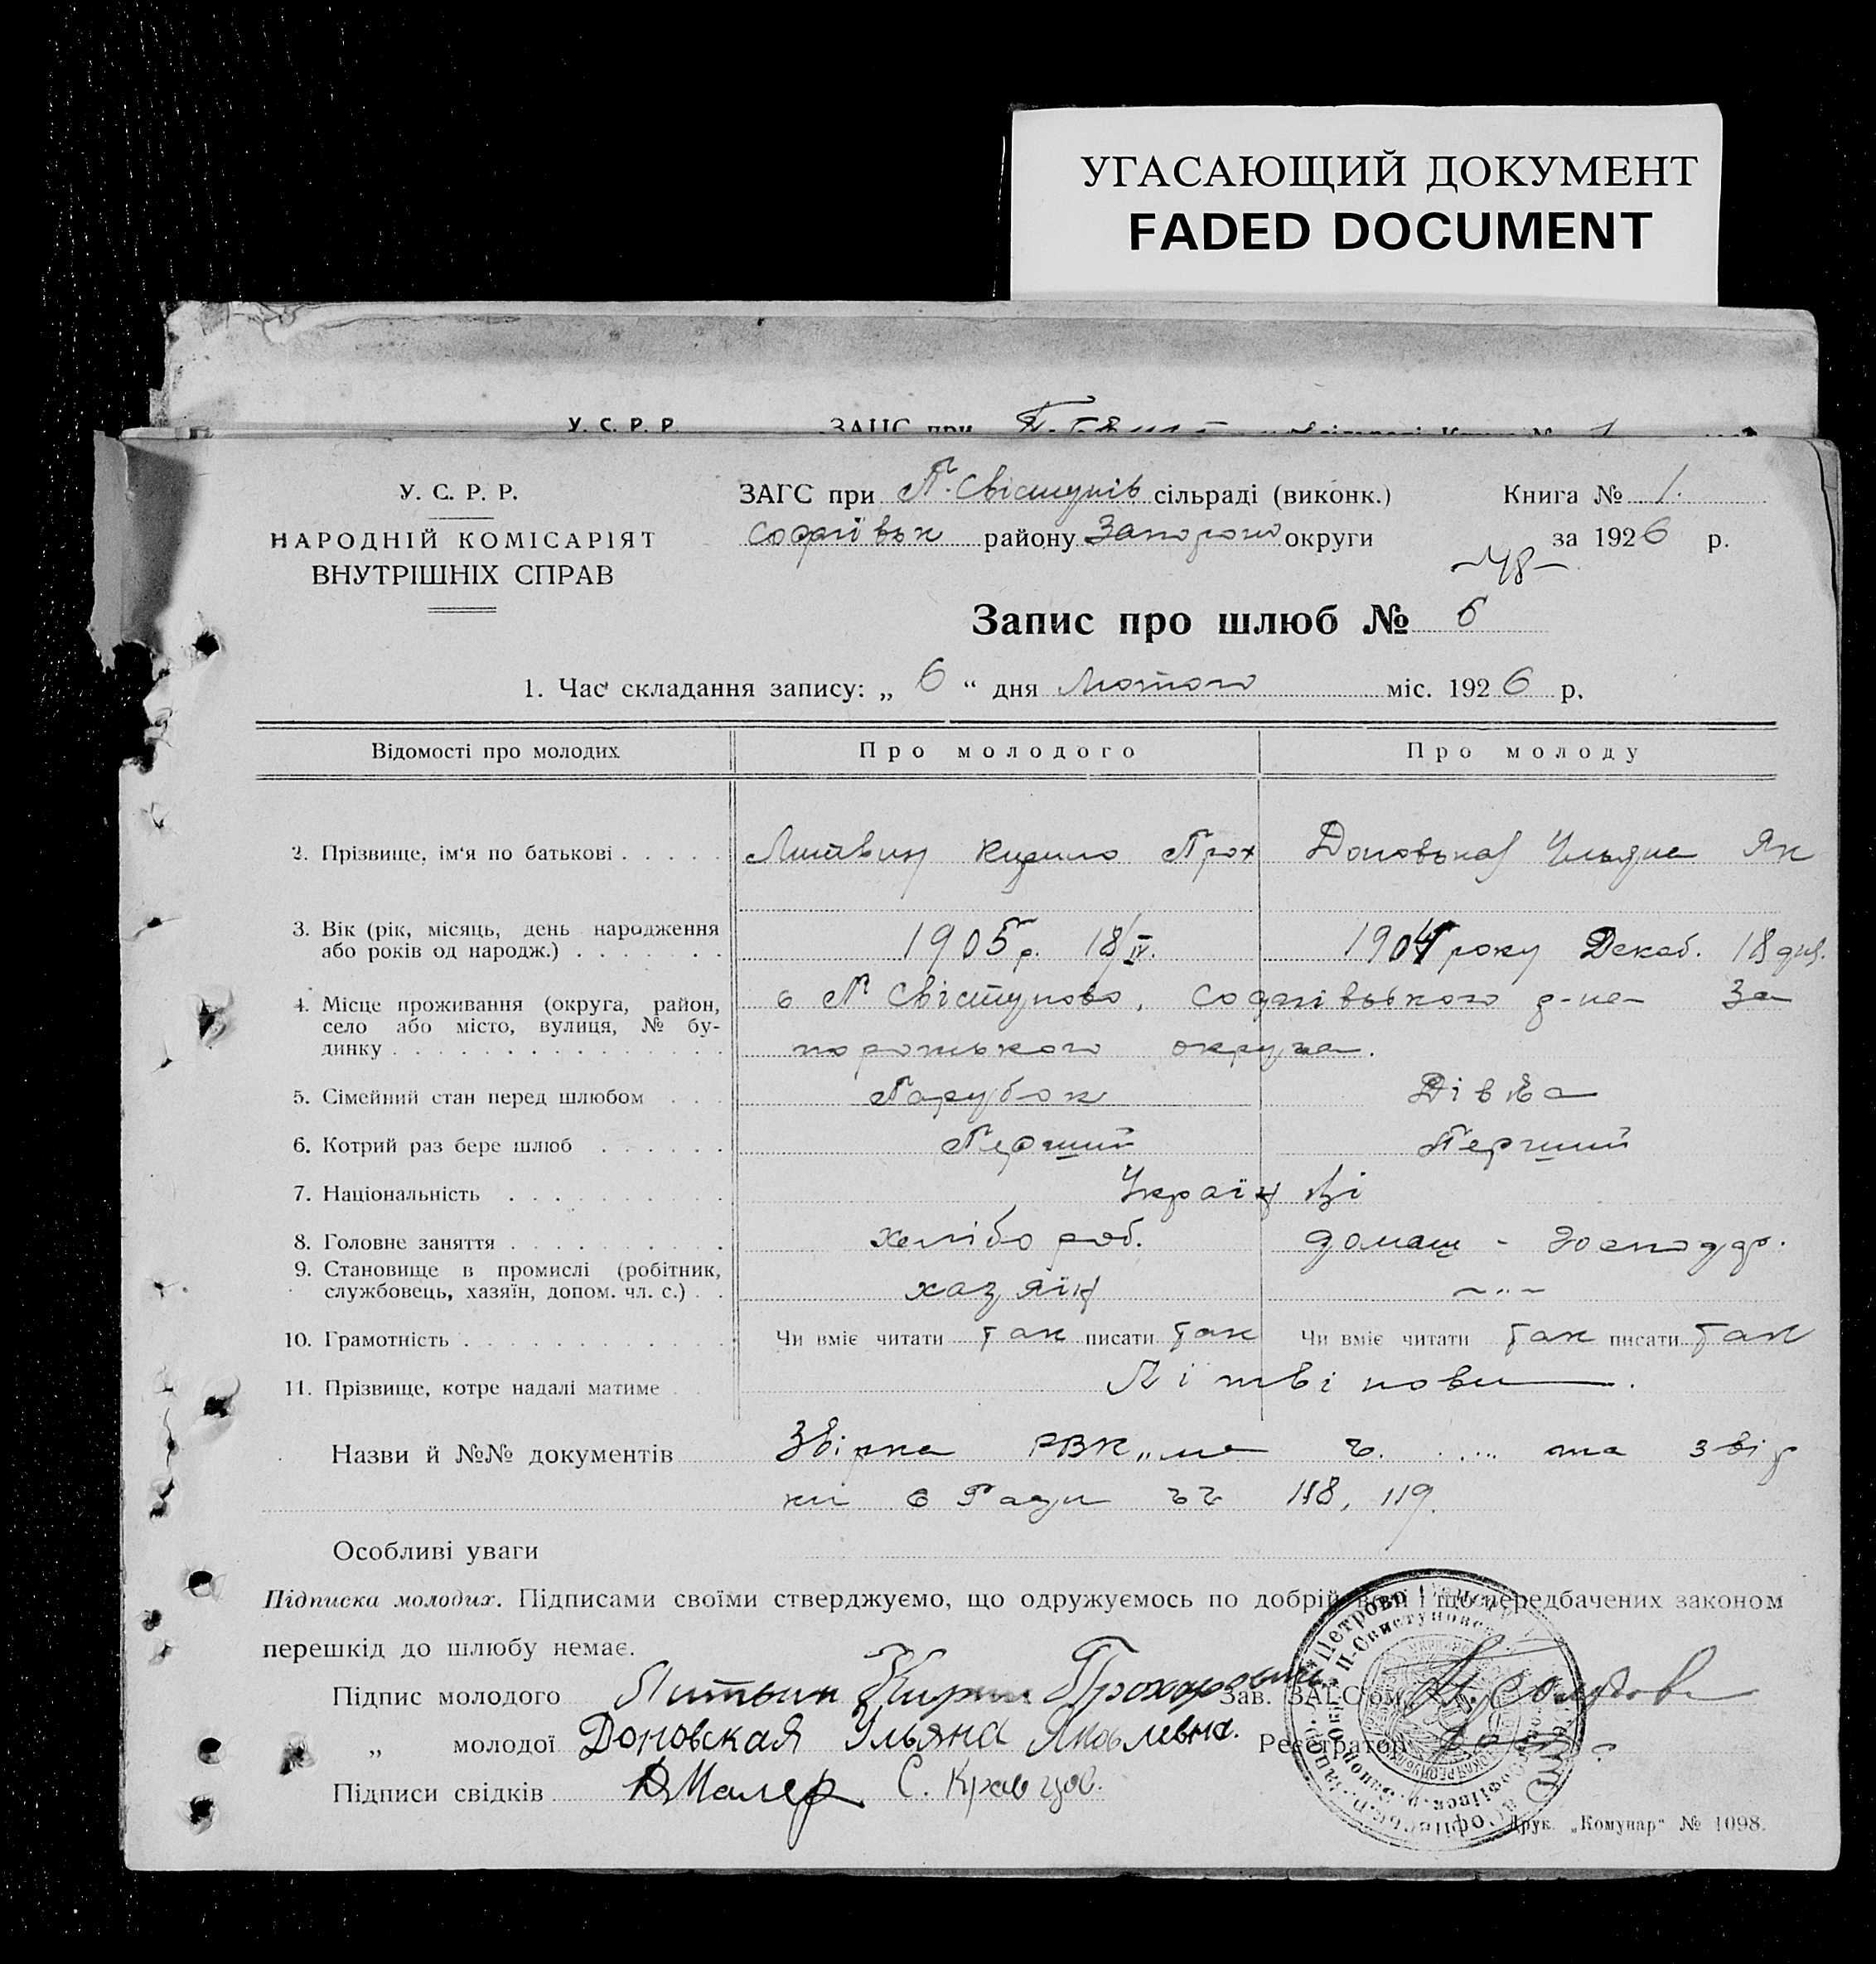 УГАСАЮЩИЙ ДОКУМЕНТ
FADED DOCUMENT
У. С. Р. Р. ЗАГС при
У. С. Р. Р.
НАРОДНІЙ КОМІСАРІЯТ
ВНУТРІШНІХ СПРАВ
ЗАГС при П. Свістунів сільраді (виконк.) Книга № 1.
Софіївськ району Запорож округи за 1926 р.
48
Запис про шлюб № 6
1. Час складання запису: „ 6 “ дня Лютого міс. 1926 р.
Відомості про молодих Про молодого Про молоду
2. Прізвище, ім'я по батькові Литвин Кирило Прох Доновська Ульяна Як
3. Вік (рік, місяць, день народження
або років од народж.) 1905 р. 18/IV. 1904 року Декаб. 18 дня.
4. Місце проживання (округа, район,
село або місто, вулиця, № бу-
динку
с П Свістуново, Софіївського р-на За
порожського округа.
5. Сімейний стан перед шлюбом Парубок Дівка
6. Котрий раз бере шлюб Перший Перший
7. Національність Українці
8. Головне заняття хлібороб. домаш - господар.
9. Становище в промислі (робітник,
службовець, хазяїн, допом. чл. с.) хазяїн -"-
10. Грамотність Чи вміє читати так писати так Чи вміє читати так писати так
11. Прізвище, котре надалі матиме Літвінови
Назви й №№ документів Звірка РВК та звір
ки с Ради 118, 119.
Особливі уваги
Підписка молодих. Підписами своїми стверджуємо, що одружуємось по добрій волі і що передбачених законом
перешкід до шлюбу немає.
Підпис молодого Литвин Кирил Прохорович Зав. ЗАГС'ом
„ молодої Доновская Ульяна Яковлевна. Реєстратор
Підписи свідків Маляр С. Кравцов.
Друк. „Комунар“ № 1098.